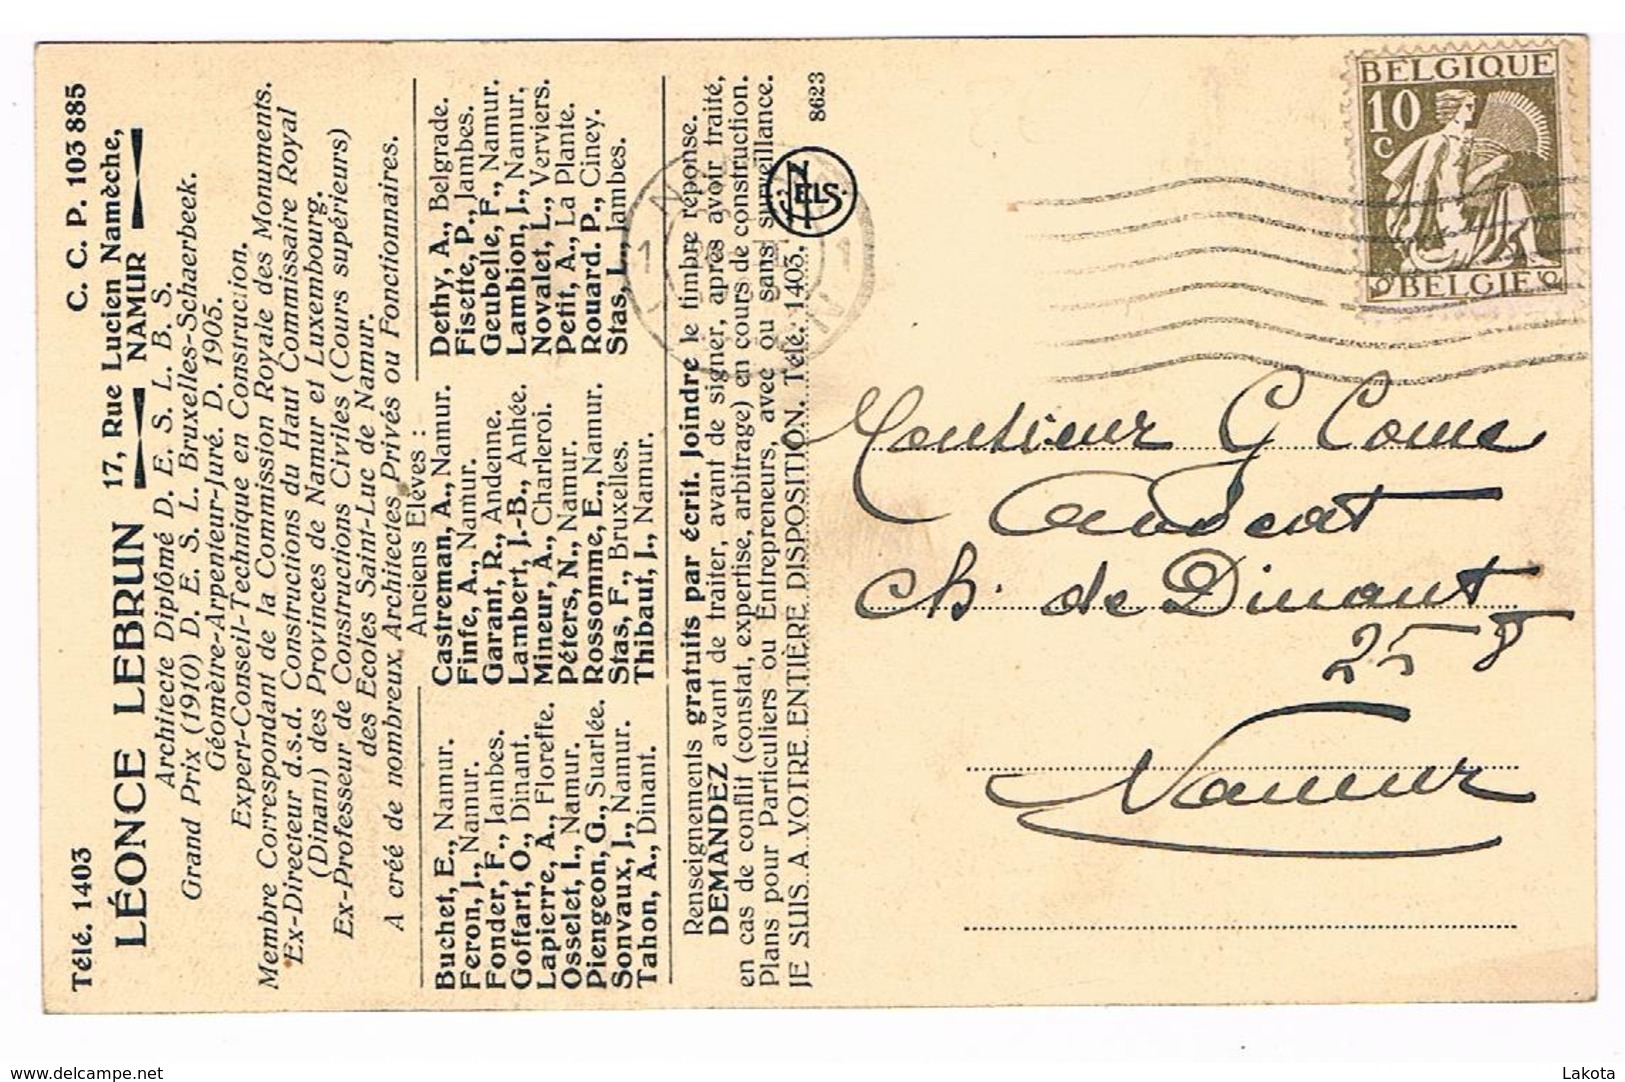 Télé. 1403 C. C. P. 103 885
LÉONCE LEBRUN 17, Rue Lucien Namèche, NAMUR
Architecte Diplômé D. E. S. L. B. S.
Grand Prix (1910) D. E. S. L. Bruxelles-Schaerbeek.
Géomètre-Arpenteur-Juré. D. 1905.
Expert-Conseil-Technique en Construction.
Membre Correspondant de la Commission Royale des Monuments.
Ex-Directeur d.s.d. Constructions du Haut Commissaire Royal
(Dinant) des Provinces de Namur et Luxembourg.
Ex-Professeur de Constructions Civiles (Cours supérieurs)
des Ecoles Saint-Luc de Namur.
A créé de nombreux Architectes Privés ou Fonctionnaires.
Anciens Elèves :
Buchet, E., Namur.
Feron, J., Namur.
Fonder, F., Jambes.
Goffart, O., Dinant.
Lapierre, A., Floreffe.
Osselet, I., Namur.
Piengeon, G., Suarlée.
Sonvaux, J., Namur.
Tahon, A., Dinant.
Castreman, A., Namur.
Finfe, A., Namur.
Garant, R., Andenne.
Lambert, J.-B., Anhée.
Mineur, A., Charleroi.
Péters, N., Namur.
Rossomme, E., Namur.
Stas, F., Bruxelles.
Thibaut, J., Namur.
Dethy, A., Belgrade.
Fisette, P., Jambes.
Geubelle, F., Namur.
Lambion, J., Namur,
Novalet, L., Verviers.
Petit, A., La Plante.
Rouard. P., Ciney.
Stas, L., Jambes.
Renseignements gratuits par écrit. Joindre le timbre réponse.
DEMANDEZ avant de traiter, avant de signer, après avoir traité,
en cas de conflit (constat, expertise, arbitrage) en cours de construction.
Plans pour Particuliers ou Entrepreneurs, avec ou sans surveillance.
JE SUIS A VOTRE ENTIÈRE DISPOSITION. Télé. 1403.
NELS
8623
BELGIQUE
10
C
BELGIE
Monsieur G Come
Avocat
Ch. de Dinant
258
Namur
delcampe.net
Lakota